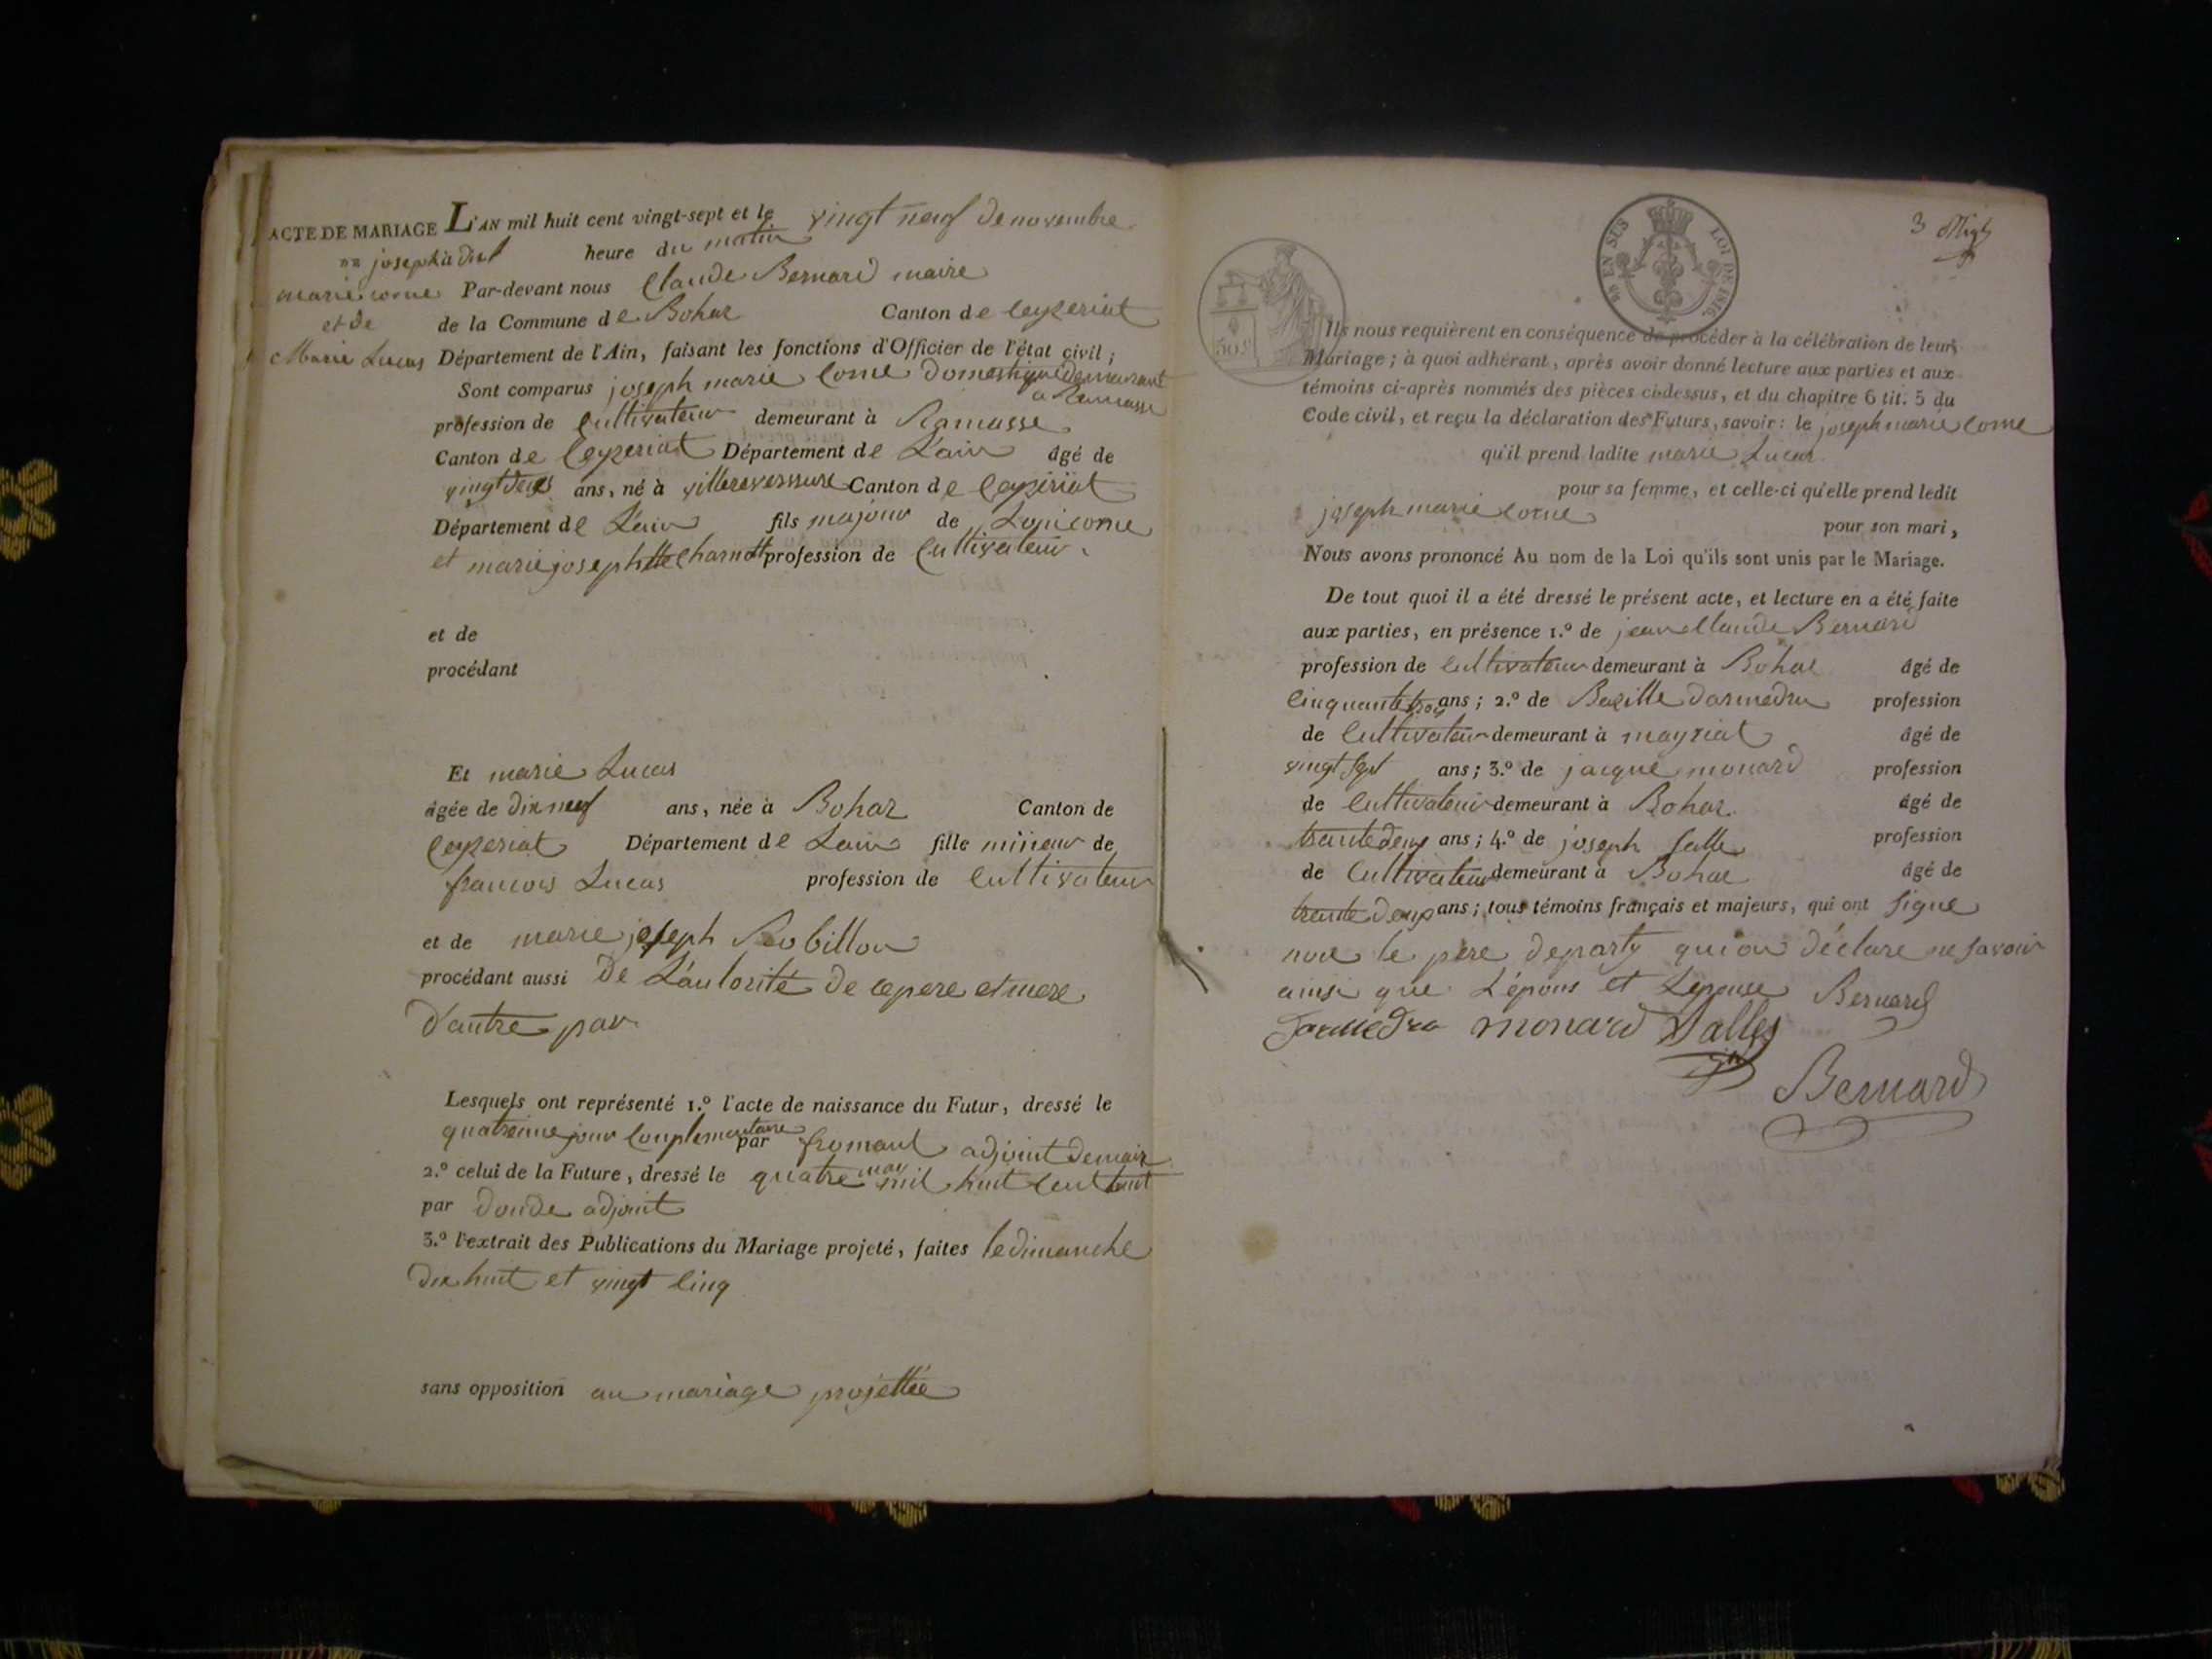 ACTE DE MARIAGE L'AN mil huit cent vingt-sept et le vingt neuf de novembre
joseph à dix heure du matin
marie come Par-devant nous Claude Bernard maire
et de de la Commune de Bohaz Canton de Ceyzeriat
Marie Lucas Département de l'Ain, faisant les fonctions d'Officier de l'état civil;
Sont comparus joseph marie Come domestique demeurant
a Ramasse
profession de Cultivateur demeurant à Ramasse
Canton de Ceyzeriat Département de L'ain âgé de
vingt deux ans, né à villereverssure Canton de Ceyzeriat
Département de L'ain fils majour de Come
et marie josephtte Charnott profession de Cultivateur
et de
procédant
Et marie Lucas
âgée de dix neuf ans, née à Bohaz Canton de
Ceyzeriat Département de Lain fille mineur de
francois Lucas profession de Cultivateur
et de marie joseph Robillon
procédant aussi de L'autorité de ce pere et mere
d'autre par
Lesquels ont représenté 1.º l'acte de naissance du Futur, dressé le
quatreime jour Couplementaire par fromant adjoint de maire
2.º celui de la Future, dressé le quatre may mil huit Cent huit
par donde adjoint
3.º l'extrait des Publications du Mariage projeté, faites le dimanche
dix huit et vingt Cinq
sans opposition au mariage projettée
3
EN SUS LOI DE 1816.
50c
Ils nous requièrent en conséquence de procéder à la célébration de leur
Mariage; à quoi adhérant, après avoir donné lecture aux parties et aux
témoins ci-après nommés des pièces ci-dessus, et du chapitre 6 tit. 5 du
Code civil, et reçu la déclaration des Futurs, savoir: le joseph marie Come
qu'il prend ladite marie Lucas
pour sa femme, et celle-ci qu'elle prend ledit
joseph marie Come pour son mari,
Nous avons prononcé Au nom de la Loi qu'ils sont unis par le Mariage.
De tout quoi il a été dressé le présent acte, et lecture en a été faite
aux parties, en présence 1.º de jean Claude Bernard
profession de Cultivateur demeurant à Bohaz âgé de
Cinquante trois ans; 2.º de Bazille darmedru profession
de Cultivateur demeurant à mayriat âgé de
vingt sept ans; 3.º de jacque monard profession
de Cultivateur demeurant à Bohaz âgé de
trante deux ans; 4.º de joseph salle profession
de Cultivateur demeurant à Bohaz âgé de
trente deux ans; tous témoins français et majeurs, qui ont signe
non le père de party qui on déclare ne savoir
ainsi que L'épous et Lepouse Bernard
Darmedru monard Salles
Bernard